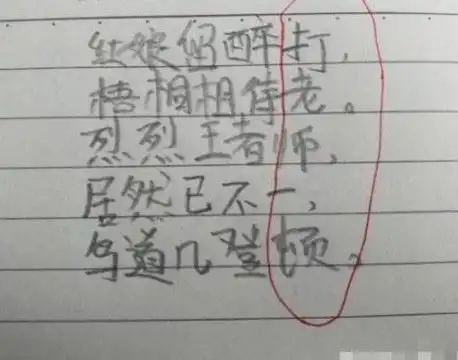 红娘留醉打，
梧桐相待老。
烈烈王者师，
居然已不一，
鸟道几登顿。